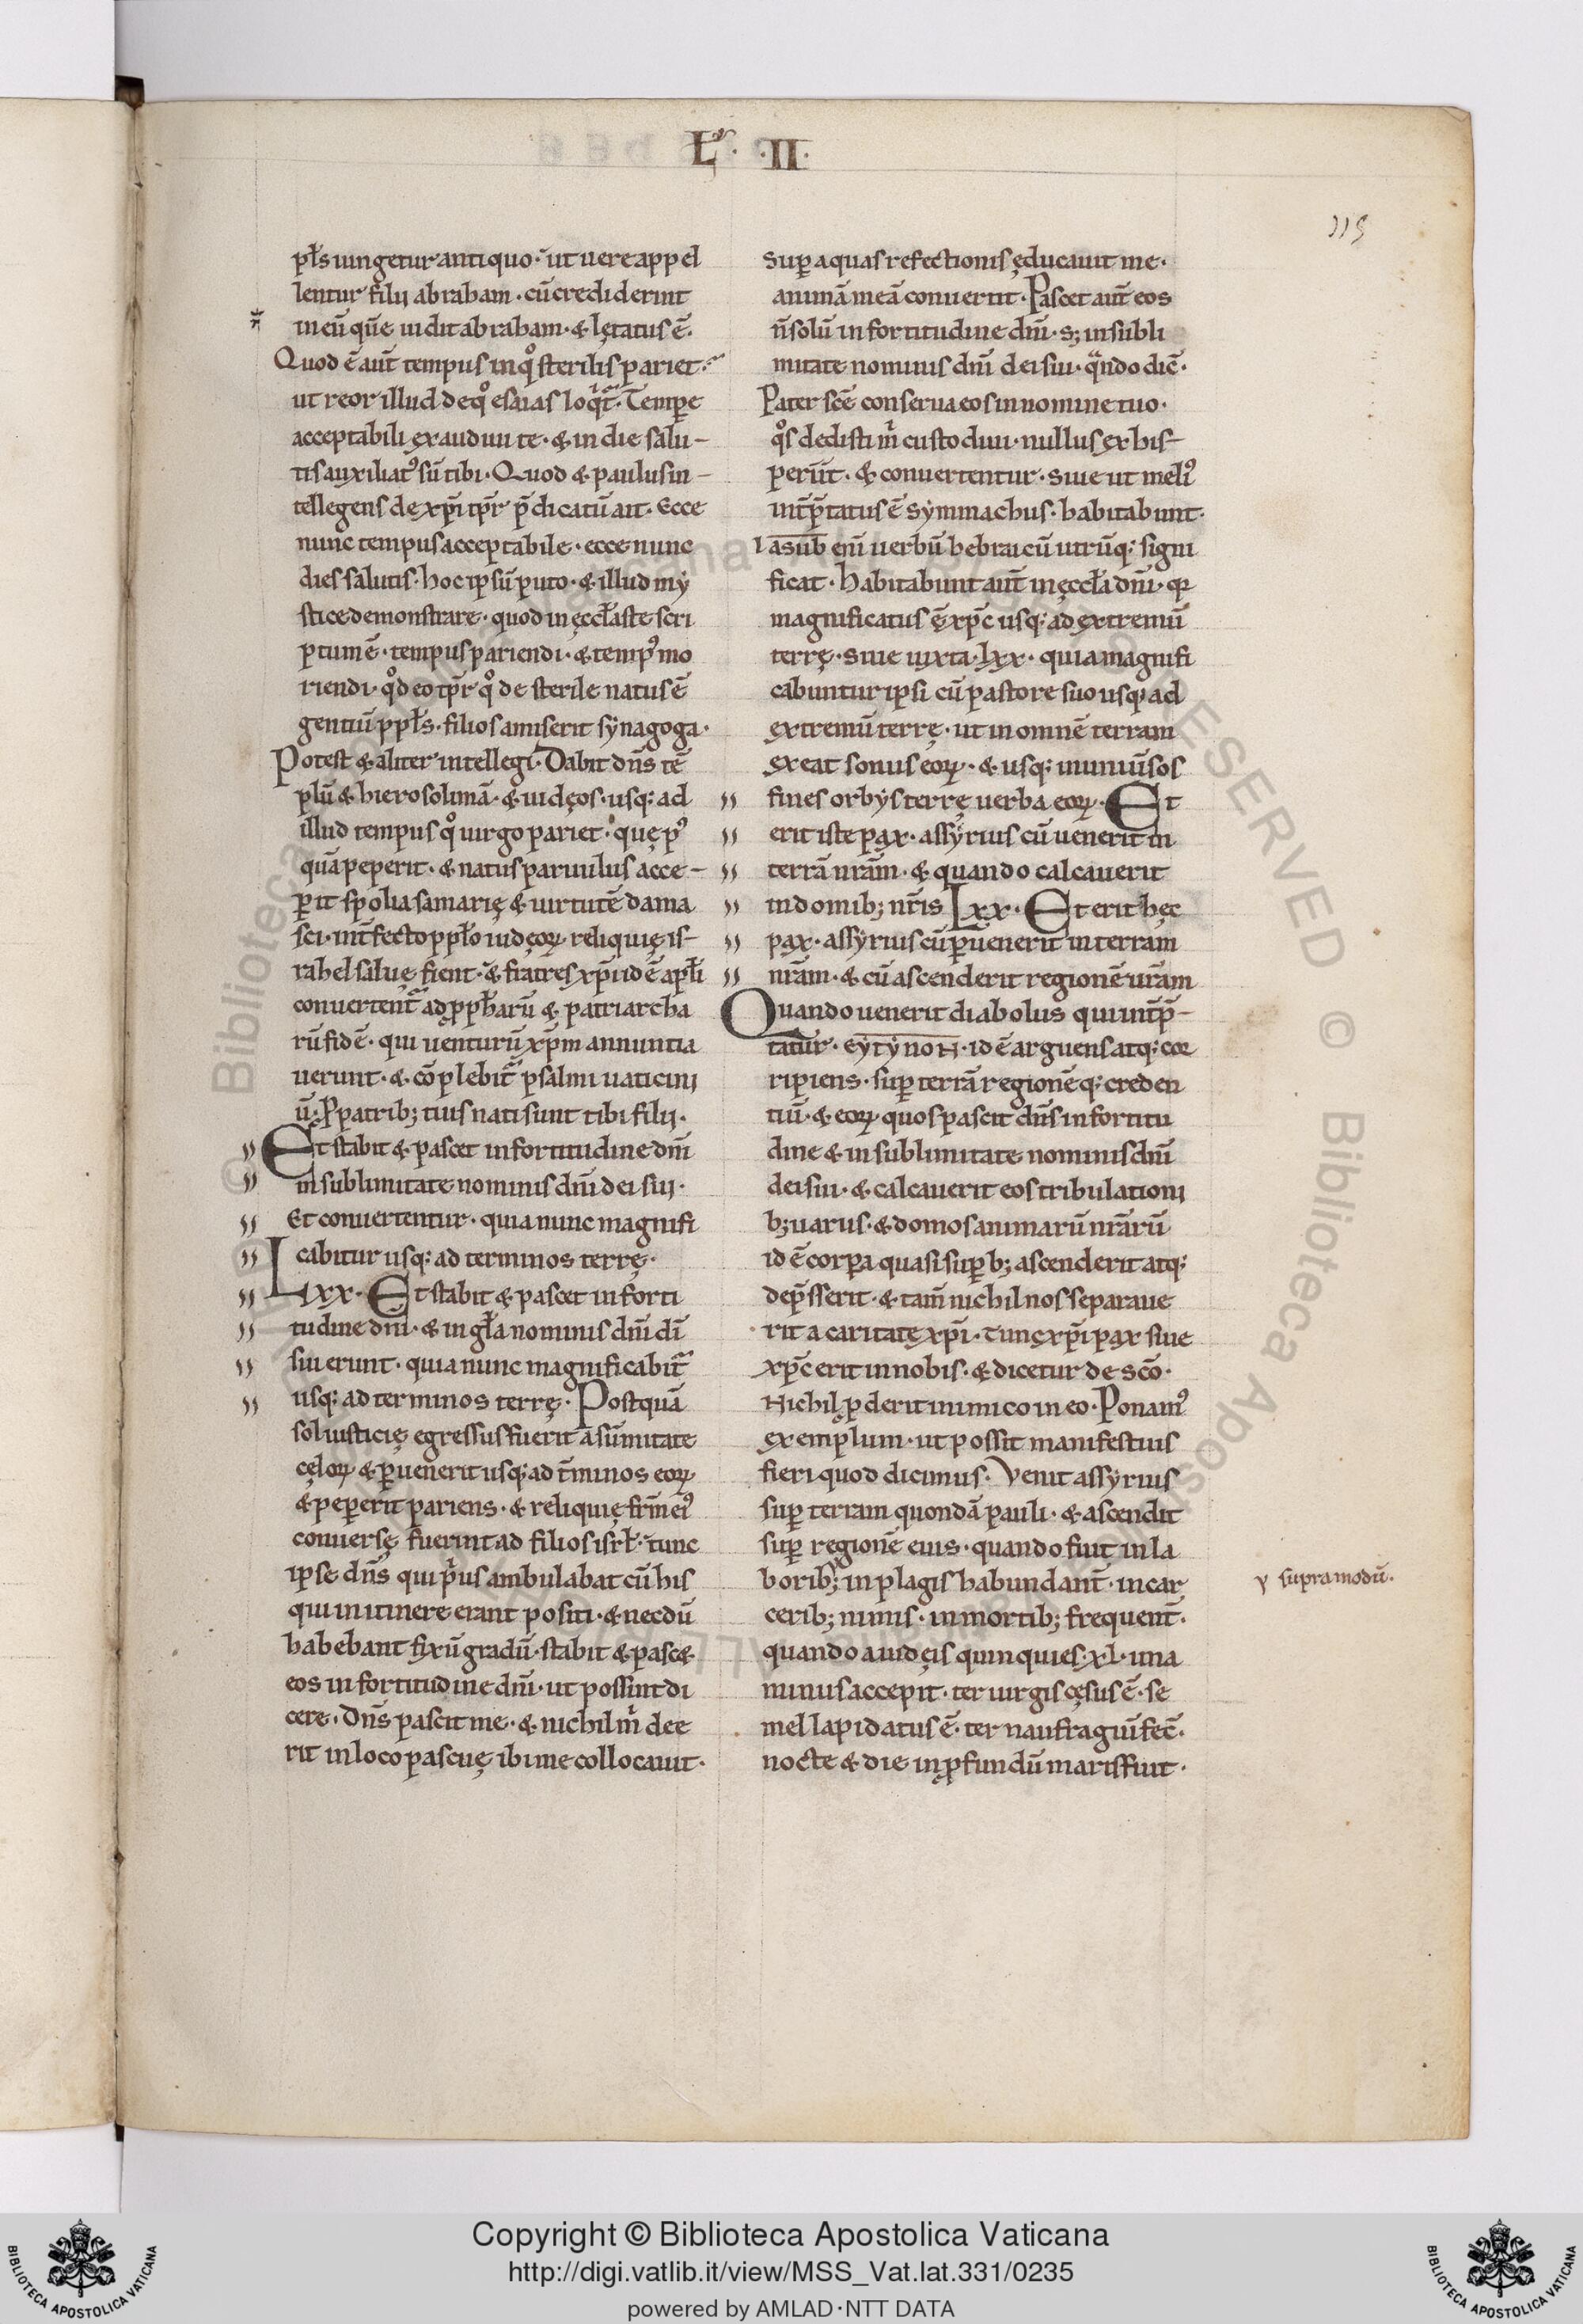 Lʳ · II ·
115
pł͞s iungetur antiquo · ut uere appel
lentur filii abraham · cū crediderint
in eū quē uidit abraham · & lętatus ē ·
Quod ē aut̄ tempus in qͦ sterilis pariet ·
ut reor illud de qͦ esaias loqͥt̄ · Temp̱e
acceptabili exaudiui te · & in die salu-
tis auxiliatꝰ sū tibi · Quod & paulus in-
tellegens de xp̄i tp̄r p̄dicatū ait · Ecce
nunc tempus acceptabile · ecce nunc
dies salutis · hoc ipsū puto · & illud my
stice demonstrare · quod in ęccłaste scri
ptum ē · tempus pariendi · & tempꝰ mo
riendi · qͦd eo tp̄r qͦ de sterile natus ē
gentiū ppł͞s · filios amiserit synagoga ·
Potest & aliter intellegi · Dabit dn̄s tē
plū & hierosolimā · & iudęos · usq; ad
illud tempus qͦ uirgo pariet · quę pꝰ
quā peperit · & natus paruulus acce-
ꝑit spolia samarię & uirtutē dama
sci · int̄fecto ppło iudęoꝝ reliquię is-
rahel saluę fient · & fratres xp̄i id ē apłi
conuertent̄ ad ꝓph̄arū & patriarcha
rū fidē · qui uenturū xp̄m annuntia
uerunt · & cōplebit̄ psalmi uaticini
ū · Ꝓ patrib; tuis nati sunt tibi filii ·
Et stabit & pascet in fortitudine dn̄i
in sublimitate nominis dn̄i dei sui ·
Et conuertentur · quia nunc magnifi
cabitur usq; ad terminos terrę ·
Lxx · Et stabit & pascet in forti
tudine dn̄i · & in gła nominis dn̄i dī
sui erunt · quia nunc magnificabit̄
usq; ad terminos terrę · Postquā
sol iusticię egressus fuerit a sūmitate
cęloꝝ & ꝑuenerit usq; ad t̄minos eoꝝ
& peꝑerit pariens · & reliquię fr̄m eiꝰ
conuersę fuerint ad filios isrł · tunc
ipse dn̄s qui pͥus ambulabat cū his
qui in itinere erant positi · & necdū
habebant fixū gradū · stabit & pasc&
eos in fortitudine dn̄i · ut possint di
cere · Dn̄s pascit me · & nichil mͥ dee
rit in loco pascuę ibi me collocauit ·
Suꝑ aquas refectionis ęducauit me ·
animā meā conuertit · Pascet aut̄ eos
n̄ solū in fortitudine dn̄i · s; in subli
mitate nominis dn̄i dei sui · qᵃndo dic̄ ·
Pater sc̄e conserua eos in nomine tuo ·
qͦs dedisti mͥ custodiui · nullus ex his
periit · & conuertentur · siue ut meliꝰ
int̄p̄tatus ē symmachus · habitabunt ·
iasub enī uerbū hebraicū utrūq; signi
ficat · Habitabunt aut̄ in ęccła dn̄i · qr
magnificatus ē xp̄c usq; ad extremū
terrę · Siue iuxta · lxx · quia magnifi
cabuntur ipsi cū pastore suo usq; ad
extremū terrę · ut in omnē terram
exeat sonus eoꝝ · & usq; in uniūsos
fines orbys terrę uerba eoꝝ · Et
erit iste pax · assyrius cū uenerit in
terrā nr̄am · & quando calcauerit
in domib; nr̄is Lxx · Et erit hęc
pax · assyrius cū ꝑuenerit in terram
nr̄am · & cū ascenderit regionē ur̄am
Quando uenerit diabolus qui int̄p̄-
tatur · eytynoн · id ē arguens atq; cor
ripiens · suꝑ terrā regionēq; creden
tiū · & eoꝝ quos pascit dn̄s in fortitu
dine & in sublimitate nominis dn̄i
dei sui · & calcauerit eos tribulationi
b; uarus · & domos animarū nr̄arū
id ē corꝑa quasi suꝑb; ascenderit atq;
dep̄sserit · & tam̄ nichil nos separaue
rit a caritate xp̄i · tunc xp̄i pax siue
xp̄c erit in nobis · & dicetur de sc̄o ·
Nichil ꝓderit inimico in eo · Ponamꝰ
exemplum · ut possit manifestius
fieri quod dicimus · Venit assyrius
suꝑ terram quondā pauli · & ascendit
suꝑ regionē eius · quando fiut in la
borib; in plagis habundant̄ · in car
cerib; nimis · in mortib; frequent̄ ·
quando a iudęis quinquies · xl · una
minus accepit · ter uirgis cęsus ē · se
mel lapidatus ē · ter naufragiū fec̄ ·
nocte & die in ꝓfundū maris fuit ·
γ supra modū ·
Copyright © Biblioteca Apostolica Vaticana
http://digi.vatlib.it/view/MSS_Vat.lat.331/0235
powered by AMLAD·NTT DATA
BIBLIOTECA APOSTOLICA VATICANA
BIBLIOTECA APOSTOLICA VATICANA